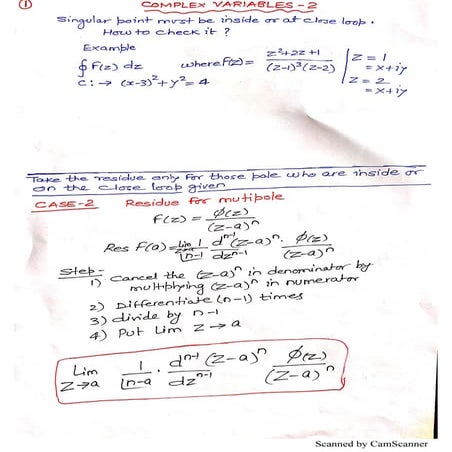 ① COMPLEX VARIABLES-2
Singular point must be inside or at close loop.
How to check it ?
Example
∮ F(z) dz where F(z) = z²+2z+1 / (z-1)³(z-2) | z = 1 = x+iy
C: → (x-3)²+y² = 4 | z = 2 = x+iy
Take the residue only for those pole who are inside or
on the close loop given
CASE-2 Residue for mutipole
F(z) = φ(z) / (z-a)ⁿ
Res F(a) = lim 1/⌊n-1 dⁿ⁻¹/dzⁿ⁻¹ (z-a)ⁿ · φ(z) / (z-a)ⁿ
Step:-
1) Cancel the (z-a)ⁿ in denominator by
multiplying (z-a)ⁿ in numerator
2) Differentiate (n-1) times
3) divide by n-1
4) Put Lim z→a
Lim z→a 1/⌊n-a · dⁿ⁻¹/dzⁿ⁻¹ (z-a)ⁿ φ(z) / (z-a)ⁿ
Scanned by CamScanner